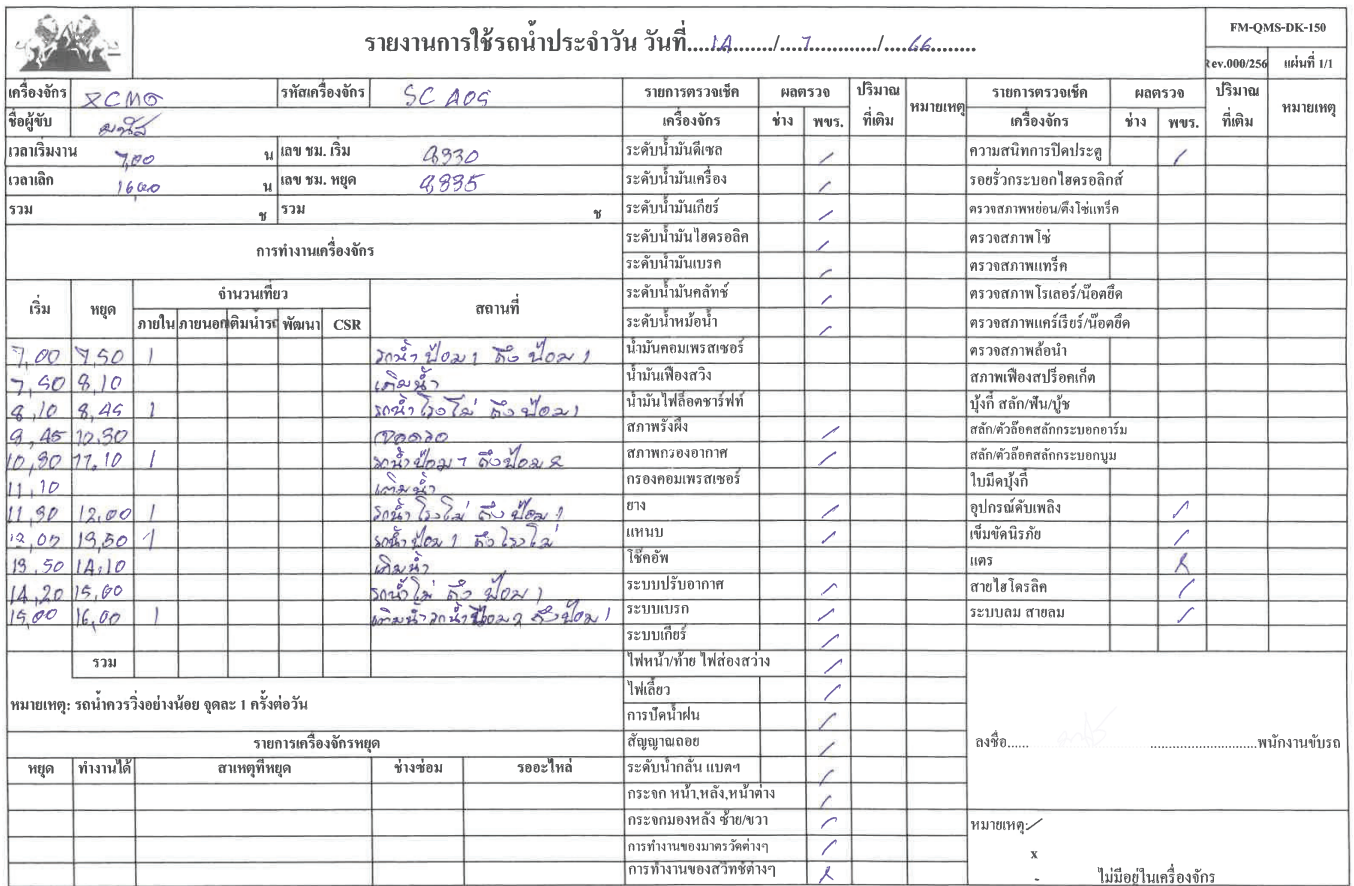 รายงานการใช้รถน้ำประจำวัน วันที่....14......../....7............./....66.........
FM-QMS-DK-150
Rev.000/256 แผ่นที่ 1/1
เครื่องจักร XCMG รหัสเครื่องจักร SC A05
ชื่อผู้ขับ มนัส
เวลาเริ่มงาน 7,00 น เลข ชม. เริ่ม 8330
เวลาเลิก 1600 น เลข ชม. หยุด 8335
รวม ช รวม ช
การทำงานเครื่องจักร
เริ่ม หยุด จำนวนเที่ยว สถานที่
ภายใน ภายนอก เติมน้ำรถ พัฒนา CSR
7,00 7,50 1 รถน้ำ ป้อม 1 ถึง ป้อม 1
7,50 8,10 เติมน้ำ
8,10 8,45 1 รถน้ำ โรงโม่ ถึง ป้อม 1
8,45 10.30 จอดรอ
10,30 11,10 1 รถน้ำ ป้อม 1 ถึง ป้อม 2
11,10 เติมน้ำ
11,30 12,00 1 รถน้ำ โรงโม่ ถึง ป้อม 1
13,50 1 รถน้ำ ป้อม 1 ถึง โรงโม่
13,50 14,10 เติมน้ำ
14,20 15,00 รถน้ำ โม่ ถึง ป้อม 1
15,00 16,00 1 เติมน้ำ รถน้ำ ป้อม 2 ถึง ป้อม 1
รวม
หมายเหตุ: รถน้ำควรวิ่งอย่างน้อย จุดละ 1 ครั้งต่อวัน
รายการเครื่องจักรหยุด
หยุด ทำงานได้ สาเหตุที่หยุด ช่างซ่อม รออะไหล่
รายการตรวจเช็ค ผลตรวจ ปริมาณ หมายเหตุ
เครื่องจักร ช่าง พขร. ที่เติม
ระดับน้ำมันดีเซล /
ระดับน้ำมันเครื่อง /
ระดับน้ำมันเกียร์ /
ระดับน้ำมันไฮดรอลิค /
ระดับน้ำมันเบรค /
ระดับน้ำมันคลัทช์ /
ระดับน้ำหม้อน้ำ /
น้ำมันคอมเพรสเซอร์
น้ำมันเฟืองสวิง
น้ำมันไฟล็อตชาร์ฟท์
สภาพรังผึ้ง /
สภาพกรองอากาศ /
กรองคอมเพรสเซอร์
ยาง /
แหนบ /
โช๊คอัพ
ระบบปรับอากาศ /
ระบบเบรก /
ระบบเกียร์ /
ไฟหน้า/ท้าย ไฟส่องสว่าง /
ไฟเลี้ยว /
การปัดน้ำฝน /
สัญญาณถอย /
ระดับน้ำกลั่น แบตฯ /
กระจก หน้า,หลัง,หน้าต่าง /
กระจกมองหลัง ซ้าย/ขวา /
การทำงานของมาตรวัดต่างๆ /
การทำงานของสวิทช์ต่างๆ x
รายการตรวจเช็ค ผลตรวจ ปริมาณ หมายเหตุ
เครื่องจักร ช่าง พขร. ที่เติม
ความสนิทการปิดประตู /
รอยรั่วกระบอกไฮดรอลิกส์
ตรวจสภาพหย่อน/ตึงโซ่แทร็ค
ตรวจสภาพโซ่
ตรวจสภาพแทร็ค
ตรวจสภาพโรเลอร์/น๊อตยึด
ตรวจสภาพแคร์เรียร์/น๊อตยึด
ตรวจสภาพล้อนำ
สภาพเฟืองสปร็อคเก็ต
บุ้งกี๋ สลัก/ฟัน/บู้ช
สลัก/ตัวล๊อคสลักกระบอกอาร์ม
สลัก/ตัวล๊อคสลักกระบอกบูม
ใบมีดบุ้งกี๋
อุปกรณ์ดับเพลิง /
เข็มขัดนิรภัย /
แตร x
สายไฮโดรลิค /
ระบบลม สายลม /
ลงชื่อ...... ..............................พนักงานขับรถ
หมายเหตุ: /
x
- ไม่มีอยู่ในเครื่องจักร